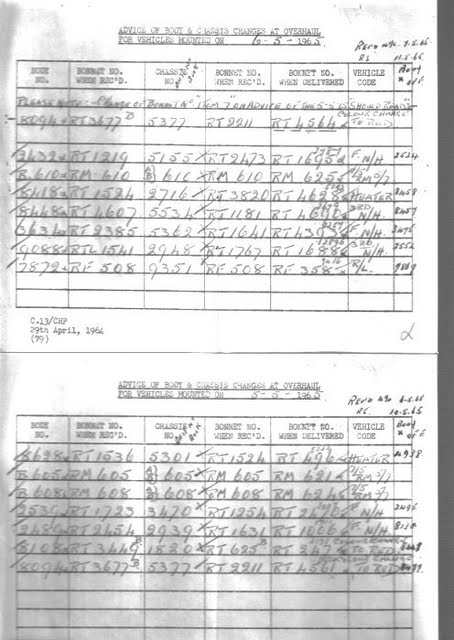 ADVICE OF BODY & CHASSIS CHANGES AT OVERHAUL
FOR VEHICLES MOUNTED ON 6-5-1965
REVD WKS 7.5.65
11.5.65
BODY NO. BONNET NO. WHEN REC'D. CHASSIS NO. BONNET NO. WHEN REC'D. BONNET NO. WHEN DELIVERED VEHICLE CODE
PLEASE NOTE:- Change of BONNET No "ITEM 7" ON ADVICE OF THE 5-5-65 SHOULD READ:-
8094 RT3677 B 5377 RT2211 RT 4564 COLOUR CHANGE TO RED
2432 RT1219 5155 RT2473 RT1695 F. N/H 2524
B610 RM 610 A) B) 610 RM 610 RM 625 RM 5/7
8418 RT1524 2716 RT 3820 RT4628 HEATER 8458
8448 RT4607 5534 RT1181 RT4690 3RD. N/H. 8457
3634 RT 2385 5362 RT1641 RT4395 F. N/H 3475
9088 RTL1541 2948 RT1767 RT1688 3RD. N/H. 2552
7872 RF 508 9351 RF 508 RF 358 R/L.
C.13/CHP
29th April, 1964
(79)
ADVICE OF BODY & CHASSIS CHANGES AT OVERHAUL
FOR VEHICLES MOUNTED ON 5-5-1965
REVD WKS 6.5.65
10.5.65
BODY NO. BONNET NO. WHEN REC'D. CHASSIS NO. BONNET NO. WHEN REC'D. BONNET NO. WHEN DELIVERED VEHICLE CODE
8628 RT1536 5301 RT1524 RT 496 HEATER
B605 RM 605 A) B) 605 RM 605 RM 621 RM 5/7
B608 RM 608 A) B) 608 RM 608 RM 624 RM 5/7
2539 RT1723 3470 RT1254 RT2470 F. N/H 2495
RT2454 2939 RT1631 RT1006 F. N/H
8108 RT3449 B 1820 RT625 B RT 247 COLOUR CHANGE TO RED
8094 RT3677 B 5377 RT2211 RT4561 COLOUR CHANGE TO RED